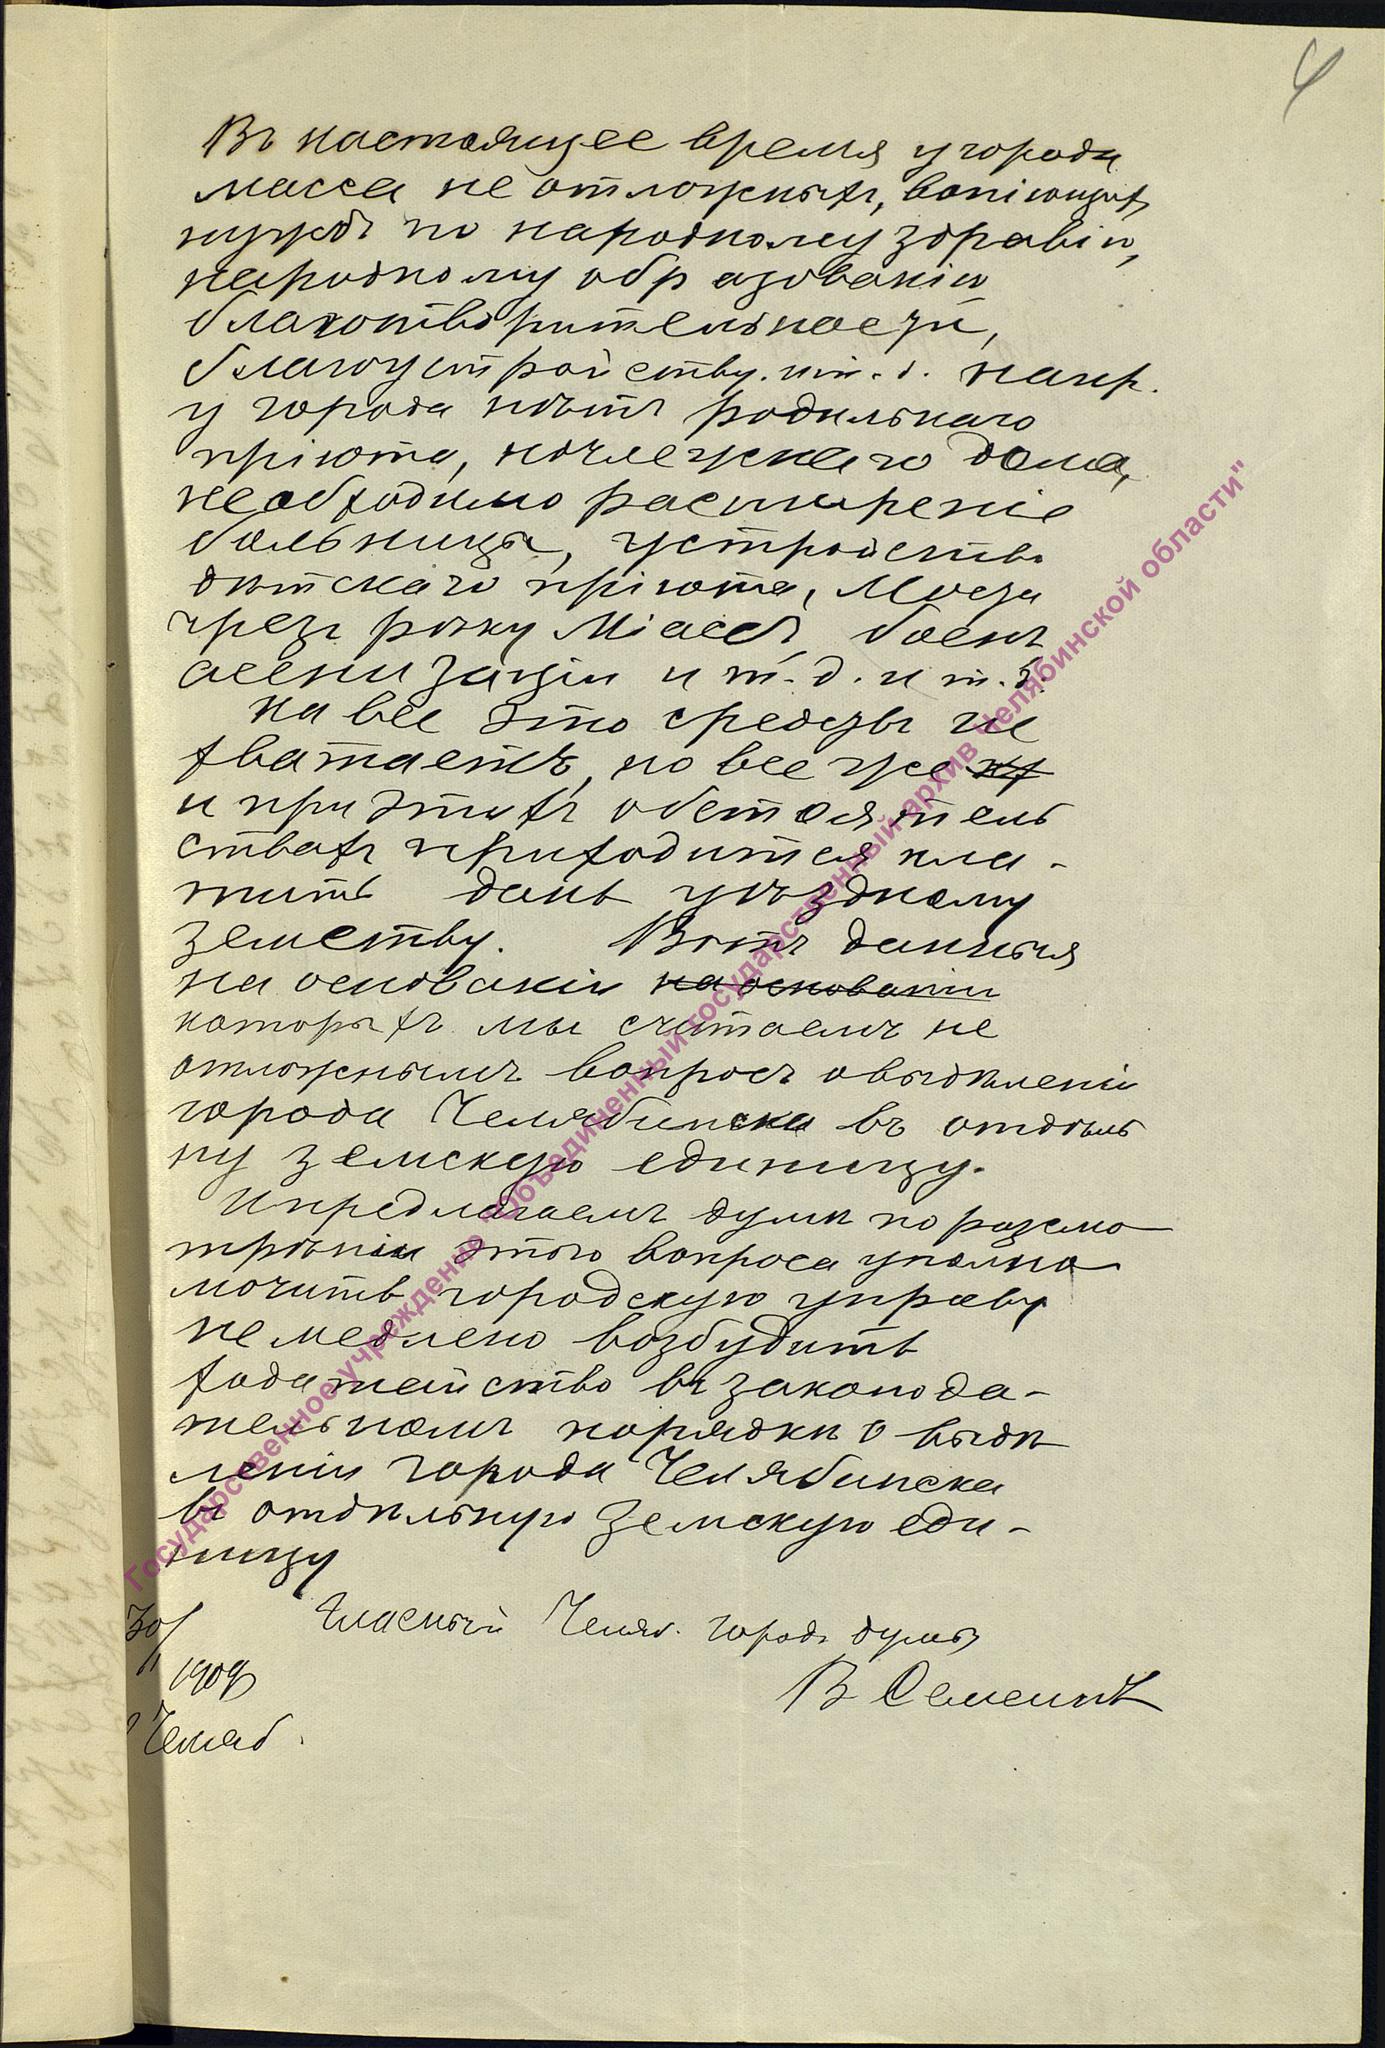 4
Въ настоящее время у города
масса не отложныхъ, вопіющихъ
нуждъ по народному здравію,
народному образованію
благотворительности,
благоустройству. и т. д. напр.
у города нѣтъ родильнаго
пріюта, ночлежнаго дома,
необходимо расширеніе
больницы, устройство
дѣтскаго пріюта, моста
чрезъ рѣку Міассъ, боенъ
ассенизаціи и т. д. и т. д.
На все это средствъ не
хватаетъ, но все же
и при этихъ обстоятель
ствахъ приходится пла-
тить дань уѣздному
земству. Вотъ данныя
на основаніи на основаніи
которыхъ мы считаемъ не
отложнымъ вопросъ о выдѣленіи
города Челябинска въ отдѣль
ну земскую единицу.
И предлагаемъ думѣ по разсмо
трѣніи этого вопроса уполно
мочить городскую управу
немедлено возбудить
ходатайство въ законода-
тельномъ порядкѣ о выдѣ
леніи города Челябинска
въ отдѣльную земскую еди-
ницу
Гласный Челяб. город. думы
В Семеинъ
30/1
1909
Челяб.
Государственное учреждение "Объединенный государственный архив Челябинской области"